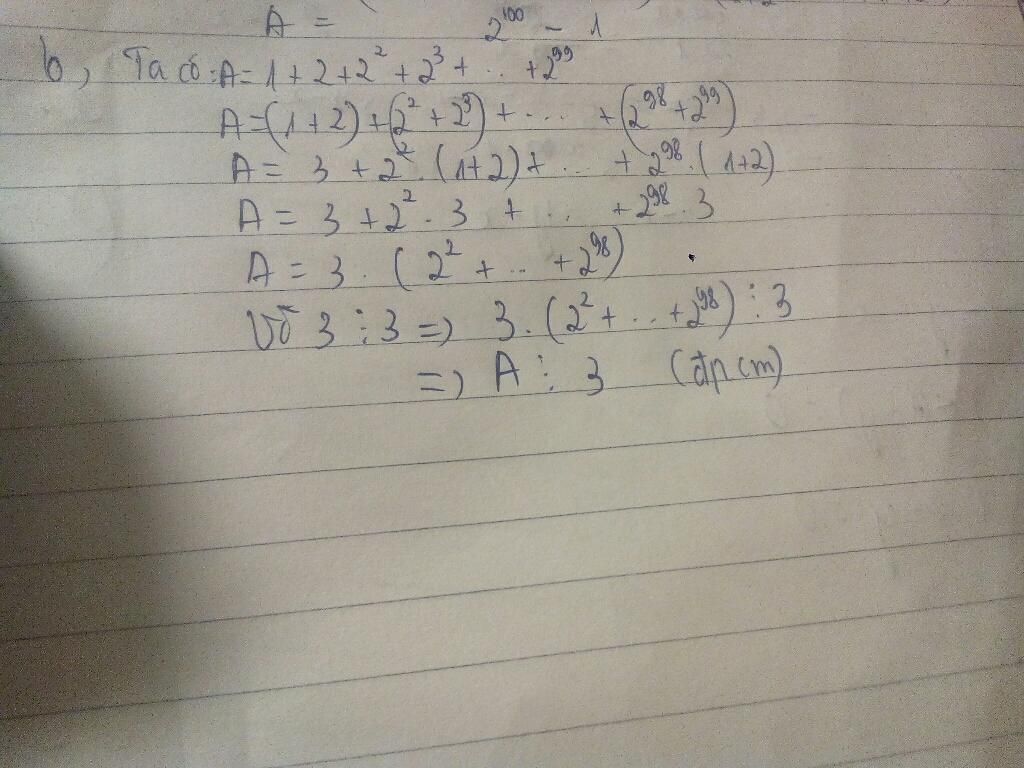 A = 2¹⁰⁰ - 1
b, Ta có: A = 1 + 2 + 2² + 2³ + ... + 2⁹⁹
A = (1 + 2) + (2² + 2³) + ... + (2⁹⁸ + 2⁹⁹)
A = 3 + 2² . (1 + 2) + ... + 2⁹⁸ . (1 + 2)
A = 3 + 2² . 3 + ... + 2⁹⁸ . 3
A = 3 . (2² + ... + 2⁹⁸)
Vì 3 ⋮ 3 => 3 . (2² + ... + 2⁹⁸) ⋮ 3
=> A ⋮ 3 (đpcm)